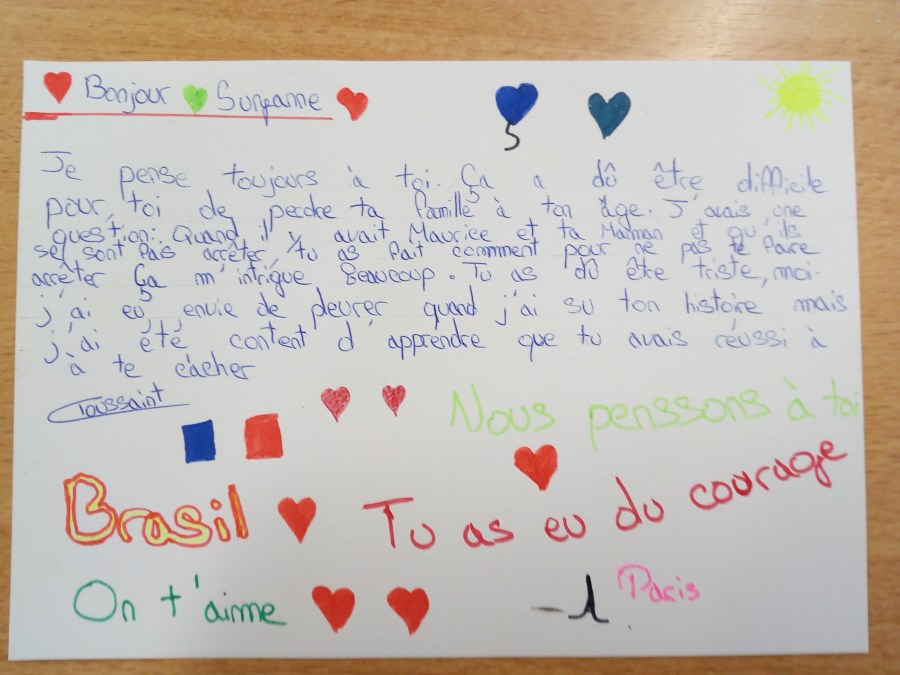 Bonjour Suzanne
Je pense toujours à toi. Ça a dû être difficile
pour toi de perdre ta famille à ton âge. J'avais une
question: Quand il y avait Maurice et ta Maman et qu'ils
se sont fais arrêter, tu as fait comment pour ne pas te faire
arrêter Ça m'intrigue Beaucoup. Tu as dû être triste, moi
j'ai eu envie de pleurer quand j'ai su ton histoire mais
j'ai été content d'apprendre que tu avais réussi à
à te cacher
Toussaint
Nous penssons à toi
Brasil
Tu as eu du courage
On t'aime
Paris